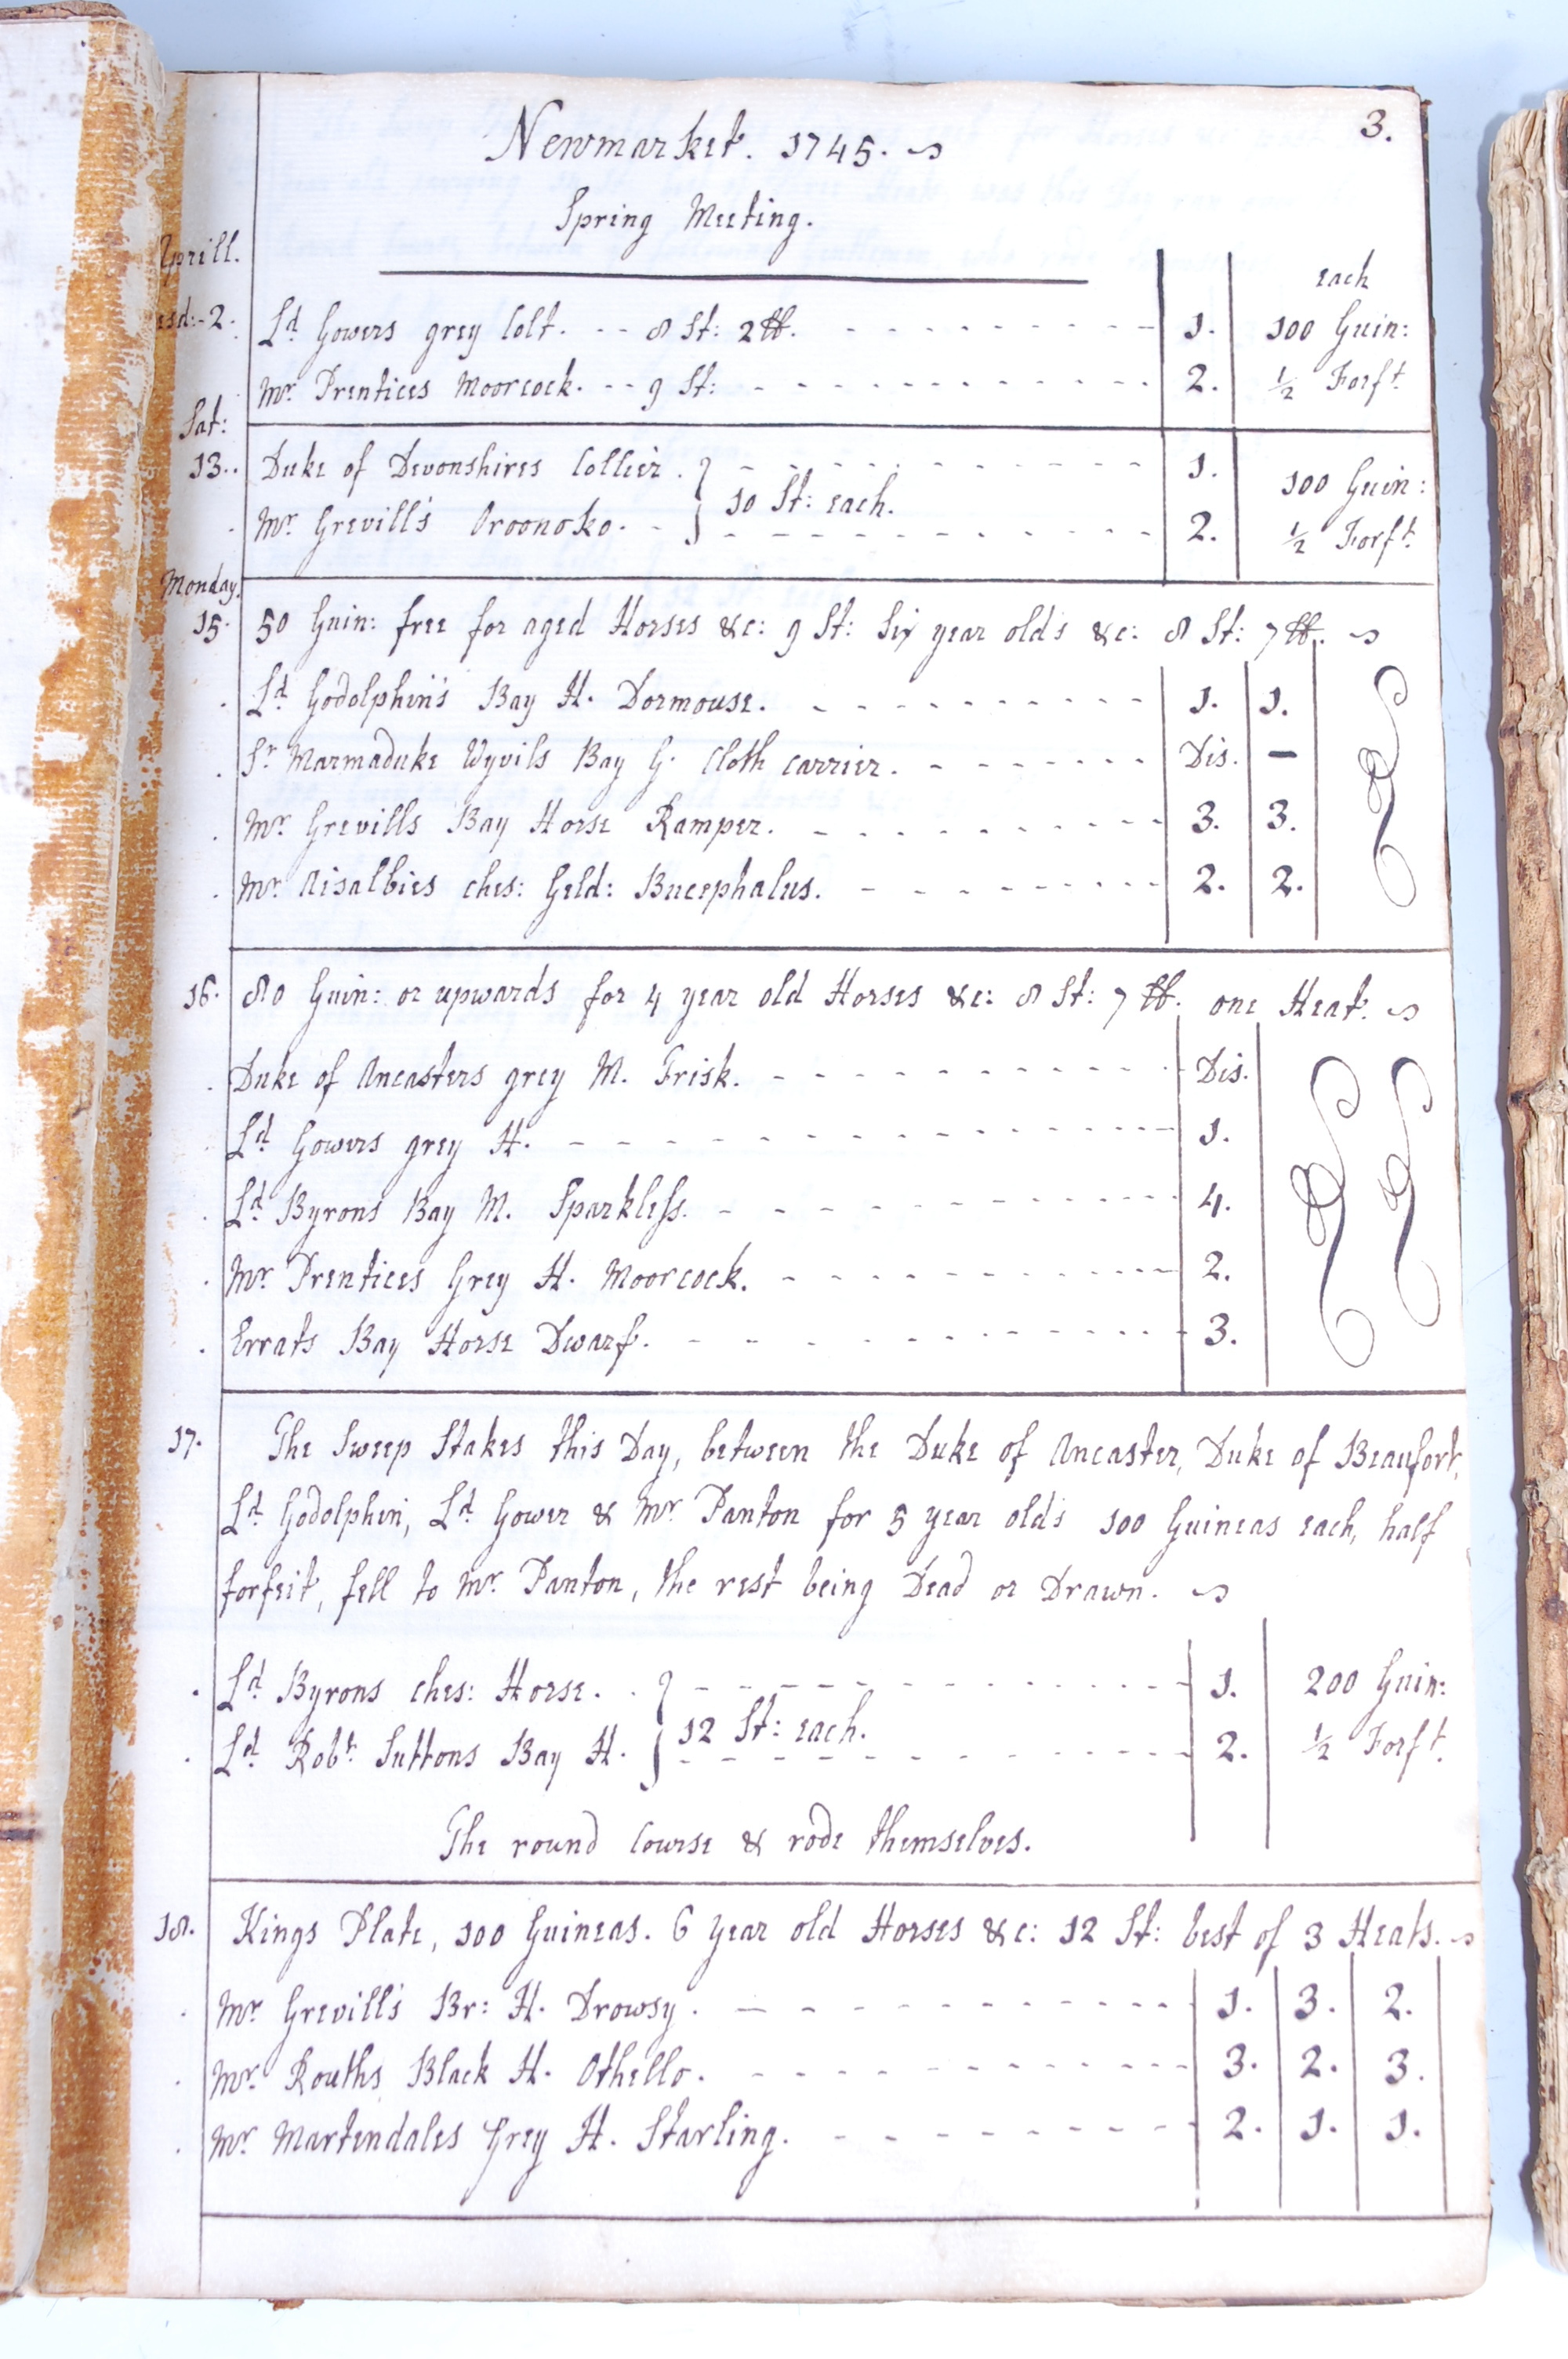 3.
Newmarket. 1745.
Spring Meeting.
Aprill.
each
esd:-2. Ld. Gowers grey Colt. -- 8 St: 2 ℔. 1. 100 Guin:
Mr. Prentices Moorcock. -- 9 St: 2. ½ Forft.
Sat:
13.. Duke of Devonshires Collier. 1. 100 Guin:
10 St: each.
Mr. Grevill's Oroonoko. 2. ½ Forft.
Monday.
15. 50 Guin: free for aged Horses &c: 9 St: Six year olds &c: 8 St: 7 ℔.
Ld. Godolphin's Bay H. Dormouse. 1. 1.
Sr. Marmaduke Wyvils Bay G. Cloth carrier. Dis. –
Mr. Grevills Bay Horse Ramper. 3. 3.
Mr. Aisalbies ches: Geld: Bucephalus. 2. 2.
16. 80 Guin: or upwards for 4 year old Horses &c: 8 St: 7 ℔. one Heat.
Duke of Ancasters grey M. Frisk. Dis.
Ld. Gowers grey H. 1.
Ld. Byrons Bay M. Sparkless. 4.
Mr. Prentices Grey H. Moorcock. 2.
Errats Bay Horse Dwarf. 3.
17. The Sweep Stakes this Day, between the Duke of Ancaster, Duke of Beaufort,
Ld. Godolphin, Ld. Gower & Mr. Panton for 5 year olds 100 Guineas each, half
forfeit, fell to Mr. Panton, the rest being Dead or Drawn.
Ld. Byrons ches: Horse. 1. 200 Guin:
12 St: each.
Ld. Robt. Suttons Bay H. 2. ½ Forft.
The round Course & rode themselves.
18. Kings Plate, 100 Guineas. 6 year old Horses &c: 12 St: best of 3 Heats.
Mr. Grevill's Br: H. Drowsy. 1. 3. 2.
Mr. Rouths Black H. Othello. 3. 2. 3.
Mr. Martindales Grey H. Starling. 2. 1. 1.